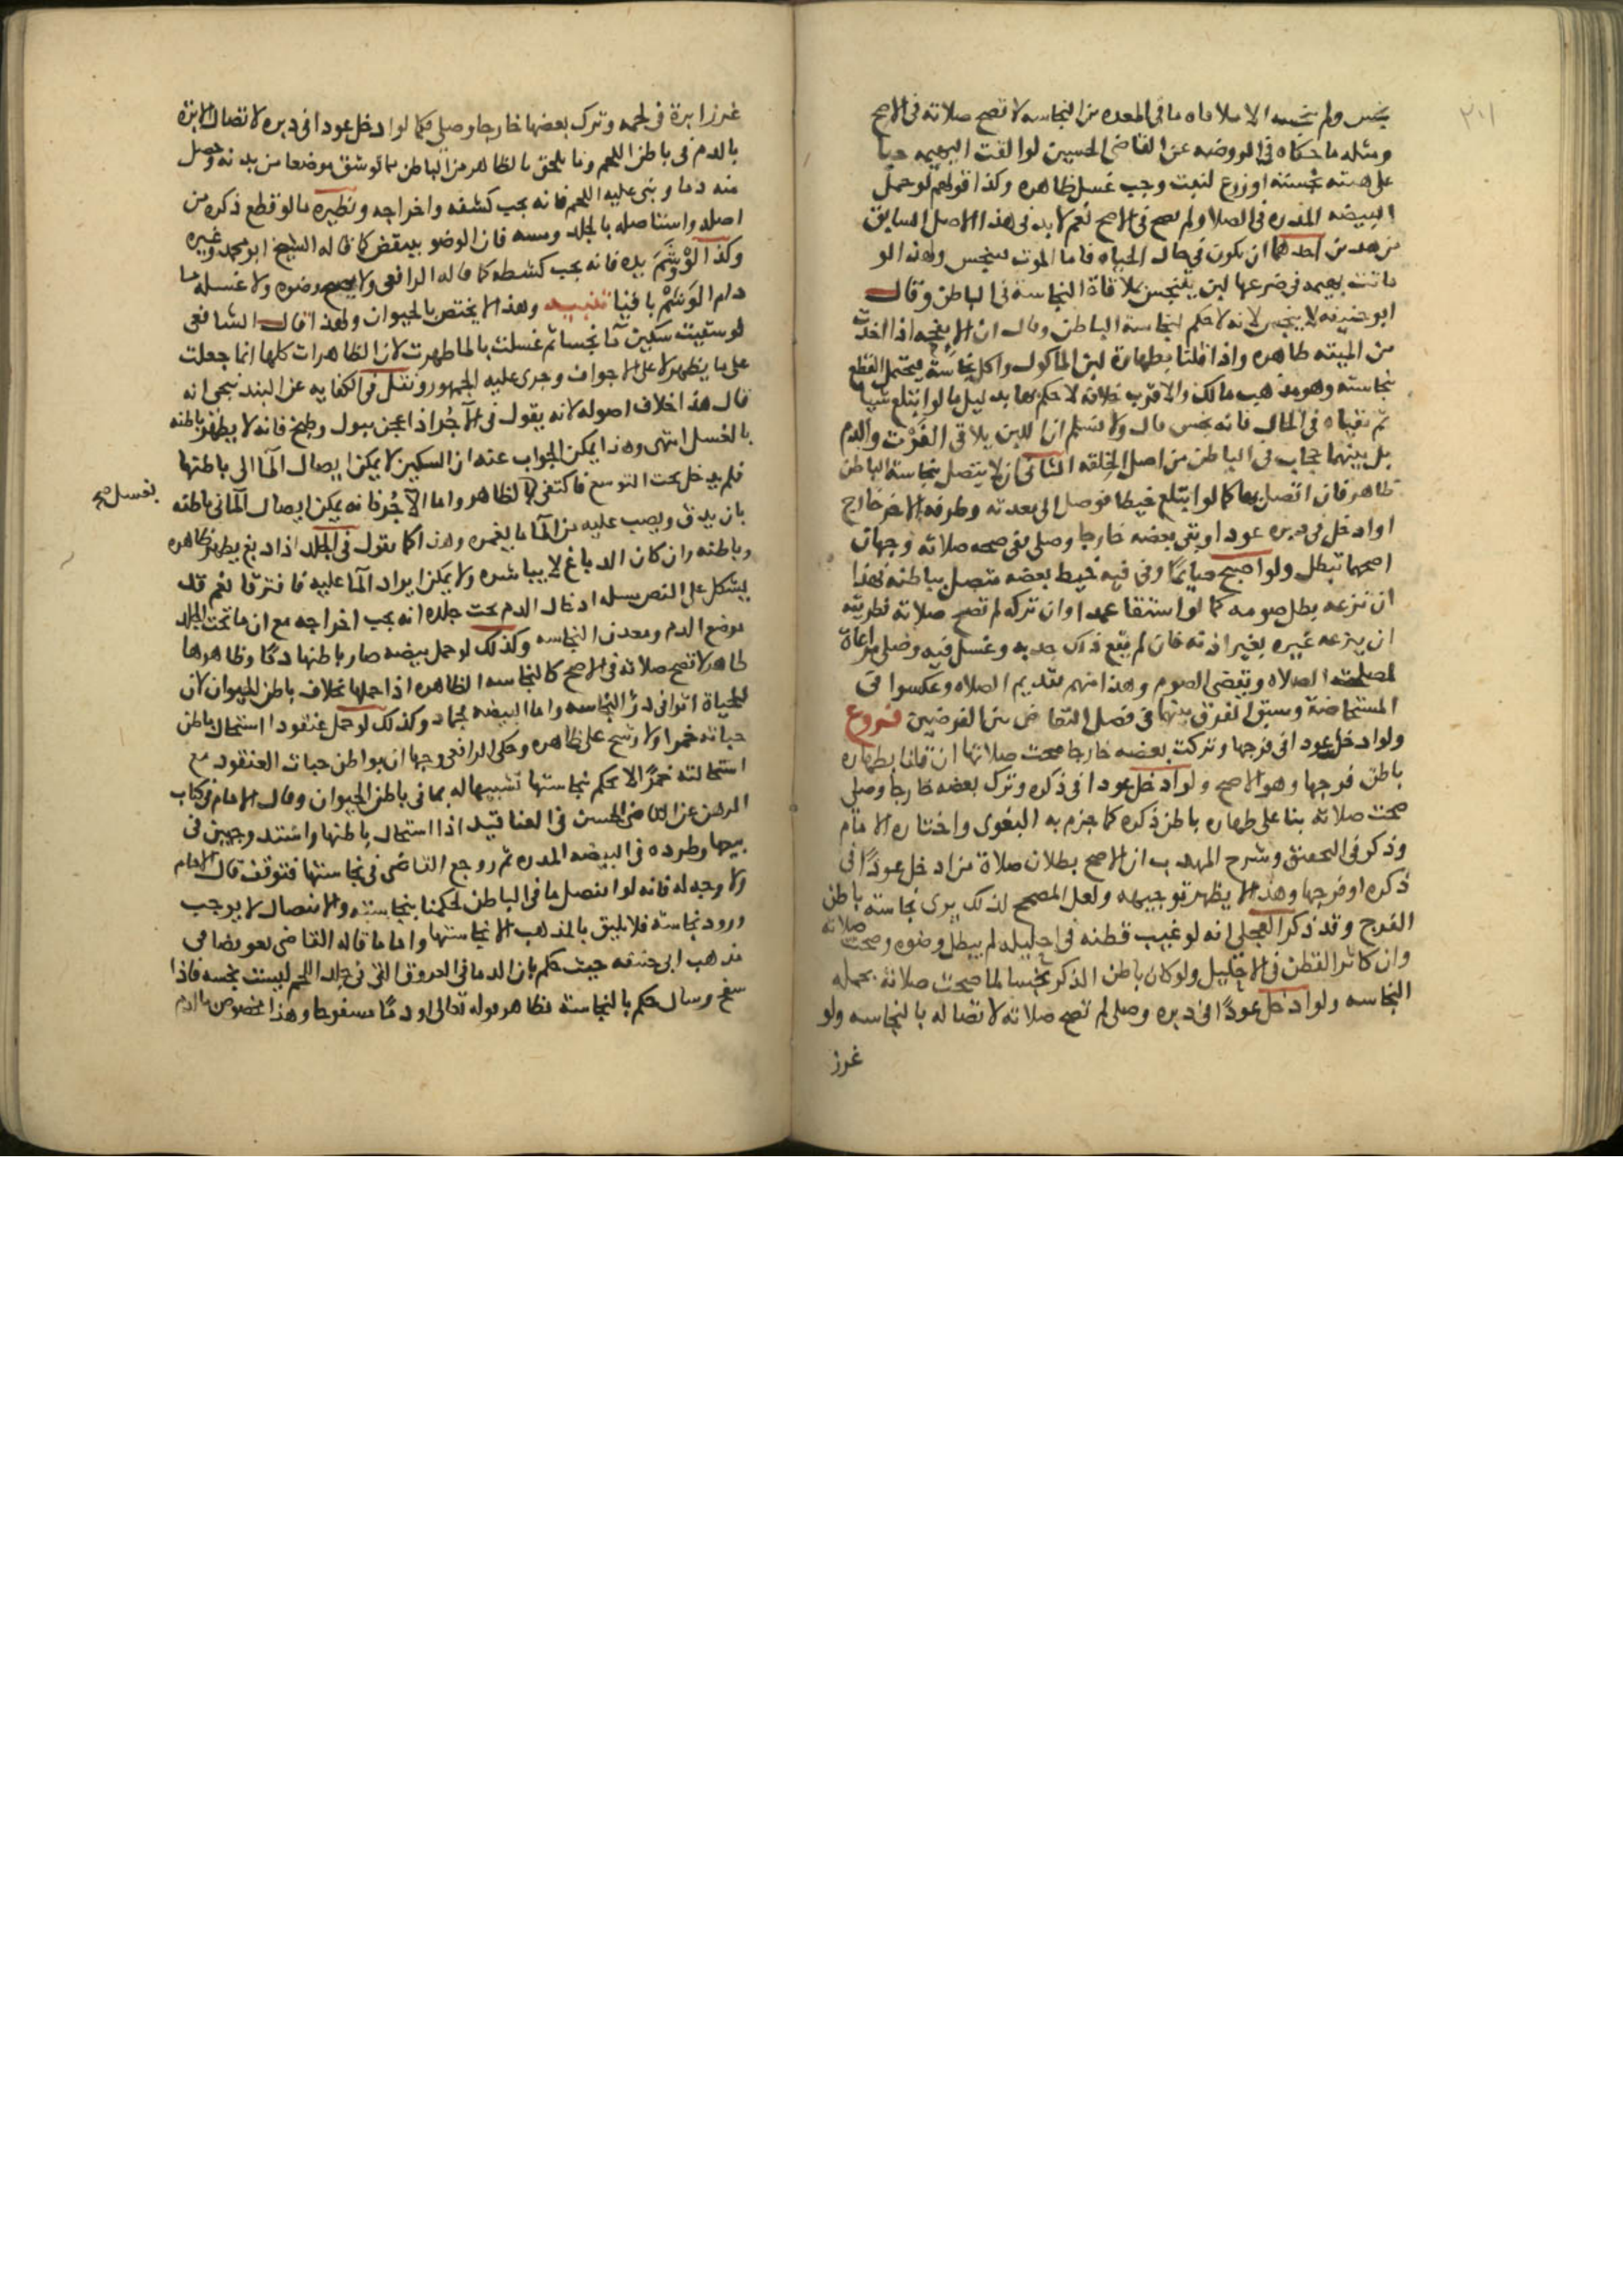 ٢٠١
ولم الا ملاقاه ما فى المعده من النجاسه لا تصح صلاته فى الاصح
ومثله ما حكاه فى الروضه عن القاضى الحسين لو القت البهيمه حبا
على هيئته بحيث لو زرع لنبت وجب غسل ظاهره وكذا قولهم لو حمل
البيضه المذره فى الصلاه لم تصح فى الاصح نعم لا بد فى هذا الاصل السابق
من ان يكون فى حال الحياه فاما الموت فينجس ولهذا لو
ماتت بهيمه فى ضرعها لبن ينجس بملاقاة النجاسة فى الباطن وقال
ابو حنيفه لا ينجس لانه لا حكم لنجاسة الباطن وقال ان الانفحه اذا اخذت
من الميته طاهره واذا قلنا بطهارة لبن الماكول واكل نجاسة فيحتمل القطع
بنجاسته وهو مذهب مالك والاقرب خلافه لا حكم لها بدليل ما لو ابتلع شيا
ثم تقياه فى الحال فانه نجس قال ولا نسلم ان اللبن يلاقى الفَرْث والدم
بل بينهما حجاب فى الباطن من اصل الخلقه الثانى ان لا يتصل بنجاسة الباطن
ظاهر فان اتصل بها كما لو ابتلع خيطا فوصل الى معدته وطرفه الاخر خارج
او ادخل فى دبره عودا وبقى بعضه خارجا وصلى ففى صحه صلاته وجهان
اصحهما تبطل ولو اصبح صائما وفى فيه خيط بعضه متصل بباطنه فهذا
ان نزعه بطل صومه كما لو استقا عمدا وان تركه لم تصح صلاته فطريقه
ان ينزعه غيره بغير اذنه فان لم يتفق ذلك جذبه وغسل فيه وصلى مراعاة
لمصلحة الصلاه ويقضى الصوم وهذا منهم تقديم الصلاه وعكسوا فى
المستحاضة وسبق الفرق بينهما فى فصل التعارض بين الفرضين فروع
ولو ادخلت عودا فى فرجها وتركت بعضه خارجا صحت صلاتها ان قلنا بطهاره
باطن فرجها وهو الاصح ولو ادخل عودا فى ذكره وترك بعضه خارجا وصلى
صحت صلاته بنا على طهاره باطن ذكره كما جزم به البغوى واختاره الامام
وذكر فى التحقيق وشرح المهذب ان الاصح بطلان صلاة من ادخل عودًا فى
ذكره او فرجها وهذا لا يظهر توجيهه ولعل المصحح لذلك يرى نجاسة باطن
الفرج وقد ذكر العجلى انه لو غيب قطنه فى احليله لم يبطل وضوه وصحت صلاته
وان كان القطن فى الاحليل ولو كان باطن الذكر نجسا لما صحت صلاته بحمله
النجاسه ولو ادخل عودًا فى دبره وصلى لم تصح صلاته لاتصاله بالنجاسه ولو
غرز
غرز ابرة فى لحمه وترك بعضها خارجا وصلى فكما لو ادخل عودا فى دبره لاتصال الابرة
بالدم فى باطن اللحم ومما يلحق بالظاهر من الباطن ما لو شق موضعا من بدنه وجعل
منه دما وبنى عليه اللحم فانه يجب كشفه واخراجه ونظيره ما لو قطع ذكره من
اصله واستاصله بالجلد ومسه فان الوضو ينتقض كما قاله الشيخ ابو محمد وغيره
وكذا لَوْ وَشَمَ يده فانه يجب كشطه كما قاله الرافعى ولا يصح وضوه ولا غسله ما
دام الوَشْمُ باقيا تنبيه وهذا لا يختص بالحيوان ولهذا قال الشافعى
لو سقيت سكين مآ نجسا ثم غسلت بالما طهرت لان الطهارات كلها انما جعلت
على ما يظهر لا على الاجواف وجرى عليه الجمهور ونقل فى الكفايه عن البندنيجى انه
قال هذا خلاف اصوله لانه يقول فى الآجُر اذا عجن ببول وطبخ فانه لا يطهر باطنه
بالغسل انتهى وهذا يمكن الجواب عنه ان السكين لا يمكن ايصال المآ الى باطنها
فلم يدخل تحت التوسع فاكتفى بالظاهر واما الآجُر فانه يمكن ايصال المآ فى باطنه
بغسل صح
بان يدق ويصب عليه من المآ ما يغمره وهذا كما نقول فى الجلد اذا دبغ يطهر ظاهره
وباطنه وان كان الدباغ لا يباشره ولا يمكن ايراد المآ عليه فافترقا نعم قد
يشكل على النص مسله ادخال الدم تحت جلده انه يجب اخراجه مع ان ما تحت الجلد
موضع الدم ومعدن النجاسه وكذلك لو حمل بيضه صار باطنها دمًا وظاهرها
طاهر لا تصح صلاته فى الاصح كالنجاسه الظاهره اذا حملها بخلاف باطن الحيوان لان
للحياة اثرا فى درْ النجاسه واما البيضه فجماد وكذلك لو حمل عنقودا استحال باطن
حباته خمرا ولا رشح على ظاهره وحكى الرافعى وجها ان بواطن حبات العنقود مع
استحالته خمرًا لا يحكم بنجاستها تشبيها له بما فى باطن الحيوان وقال الامام فى كتاب
الرهن عن القاضى الحسين فى العناقيد اذا استحال باطنها واشتد وجهين فى
بيعها وطرده فى البيضه المذره ثم روجع القاضى فى نجاستها فتوقف قال الامام
ولا وجه له فانه لو انفصل ما فى الباطن لحكمنا بنجاسته والانفصال لا يوجب
ورود نجاسة فلا يليق بالمذهب الا نجاستها واما ما قاله القاضى فهو يضاهى
مذهب ابى حنيفه حيث حكم بان الدما فى العروق التى فى خلل اللحم ليست نجسه فاذا
سفح وسال حكم بالنجاسة لظاهر قوله تعالى او دمًا مسفوحا وهذا مخصوص بالدم